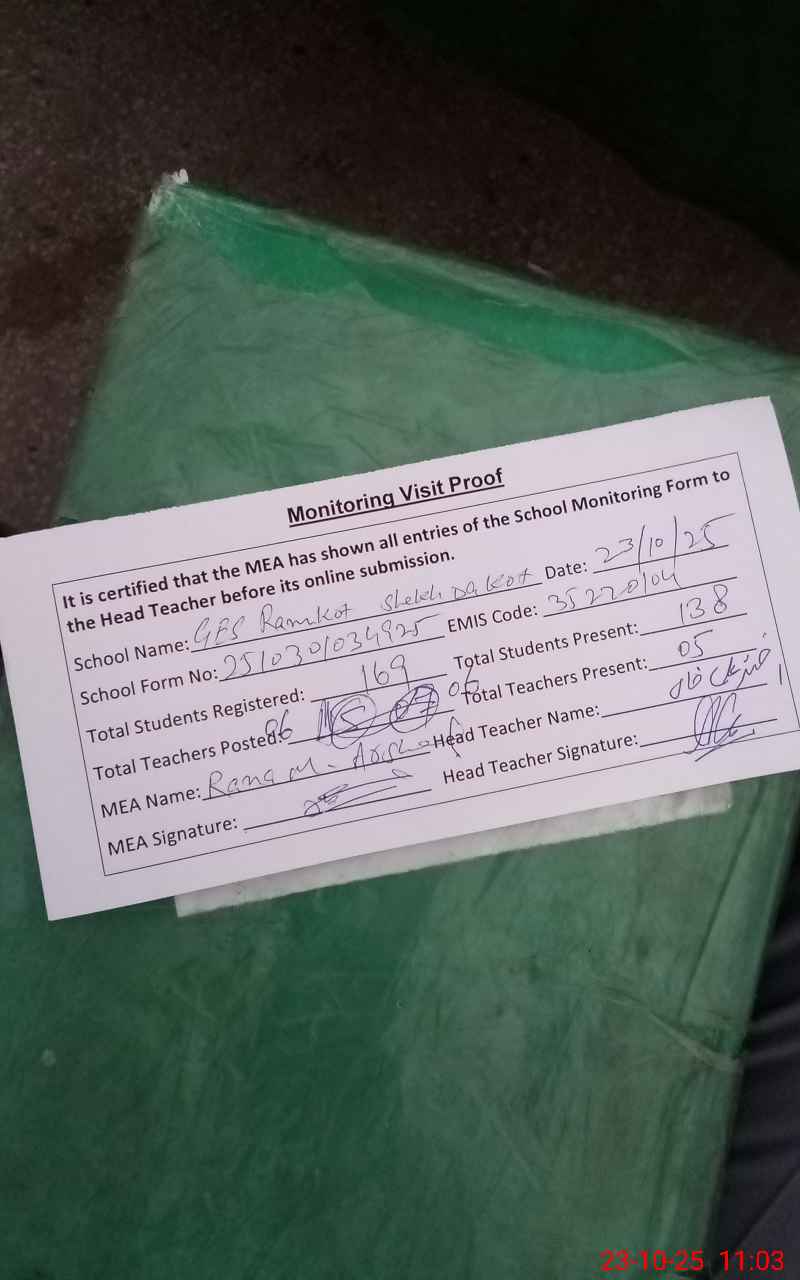 Monitoring Visit Proof
It is certified that the MEA has shown all entries of the School Monitoring Form to
the Head Teacher before its online submission.
School Name: GES Ramkot Shekh Da Kot Date: 23/10/25
School Form No: 2510301034925 EMIS Code: 35220104
Total Students Registered: 169 Total Students Present: 138
Total Teachers Posted: 06 06 Total Teachers Present: 05
MEA Name: Rana M. Arshad Head Teacher Name:
MEA Signature: Head Teacher Signature:
23-10-25 11:03